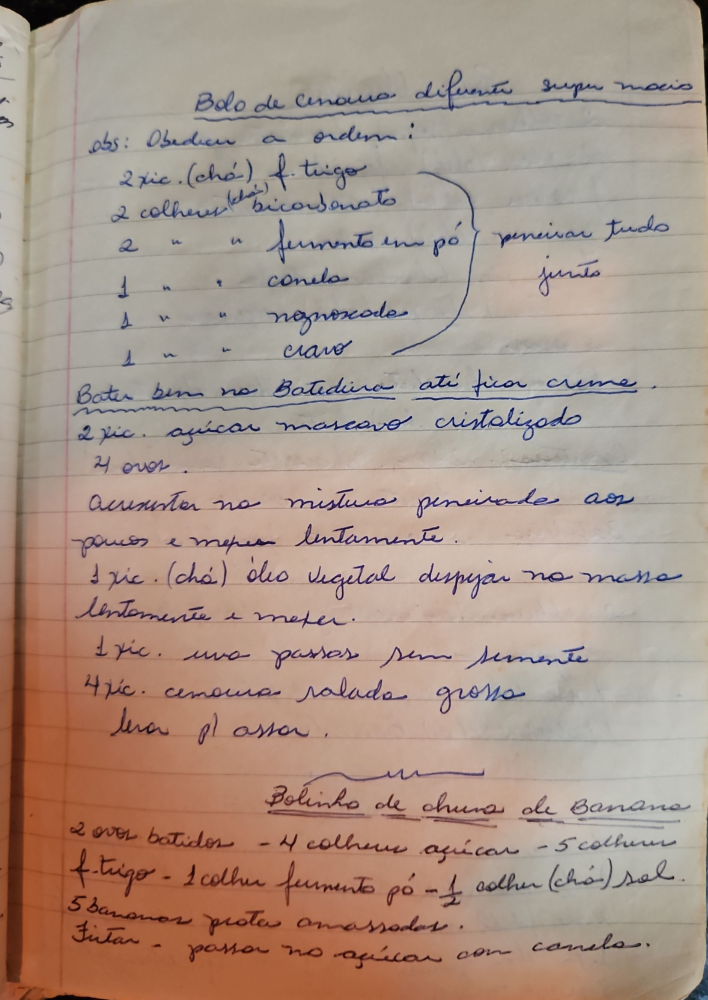 Bolo de cenoura diferente super macio
obs: Obedecer a ordem:
2 xic. (chá) f. trigo
2 colheres (chá) bicarbonato
2 " " fermento em pó
peneirar tudo
junto
1 " " canela
1 " " noz noscada
1 " " cravo
Bater bem na Batedeira até ficar creme.
2 xic. açúcar mascavo cristalizado
4 ovos.
acrescentar na mistura peneirada aos
poucos e mexer lentamente.
1 xic. (chá) óleo vegetal despejar na massa
lentamente e mexer.
1 xic. uva passas sem semente
4 xic. cenoura ralada grossa
levar p/ assar.
Bolinho de chuva de Banana
2 ovos batidos - 4 colheres açúcar - 5 colheres
f. trigo - 1 colher fermento pó - 1/2 colher (chá) sal.
5 bananas prata amassadas.
Fritar - passar no açúcar com canela.